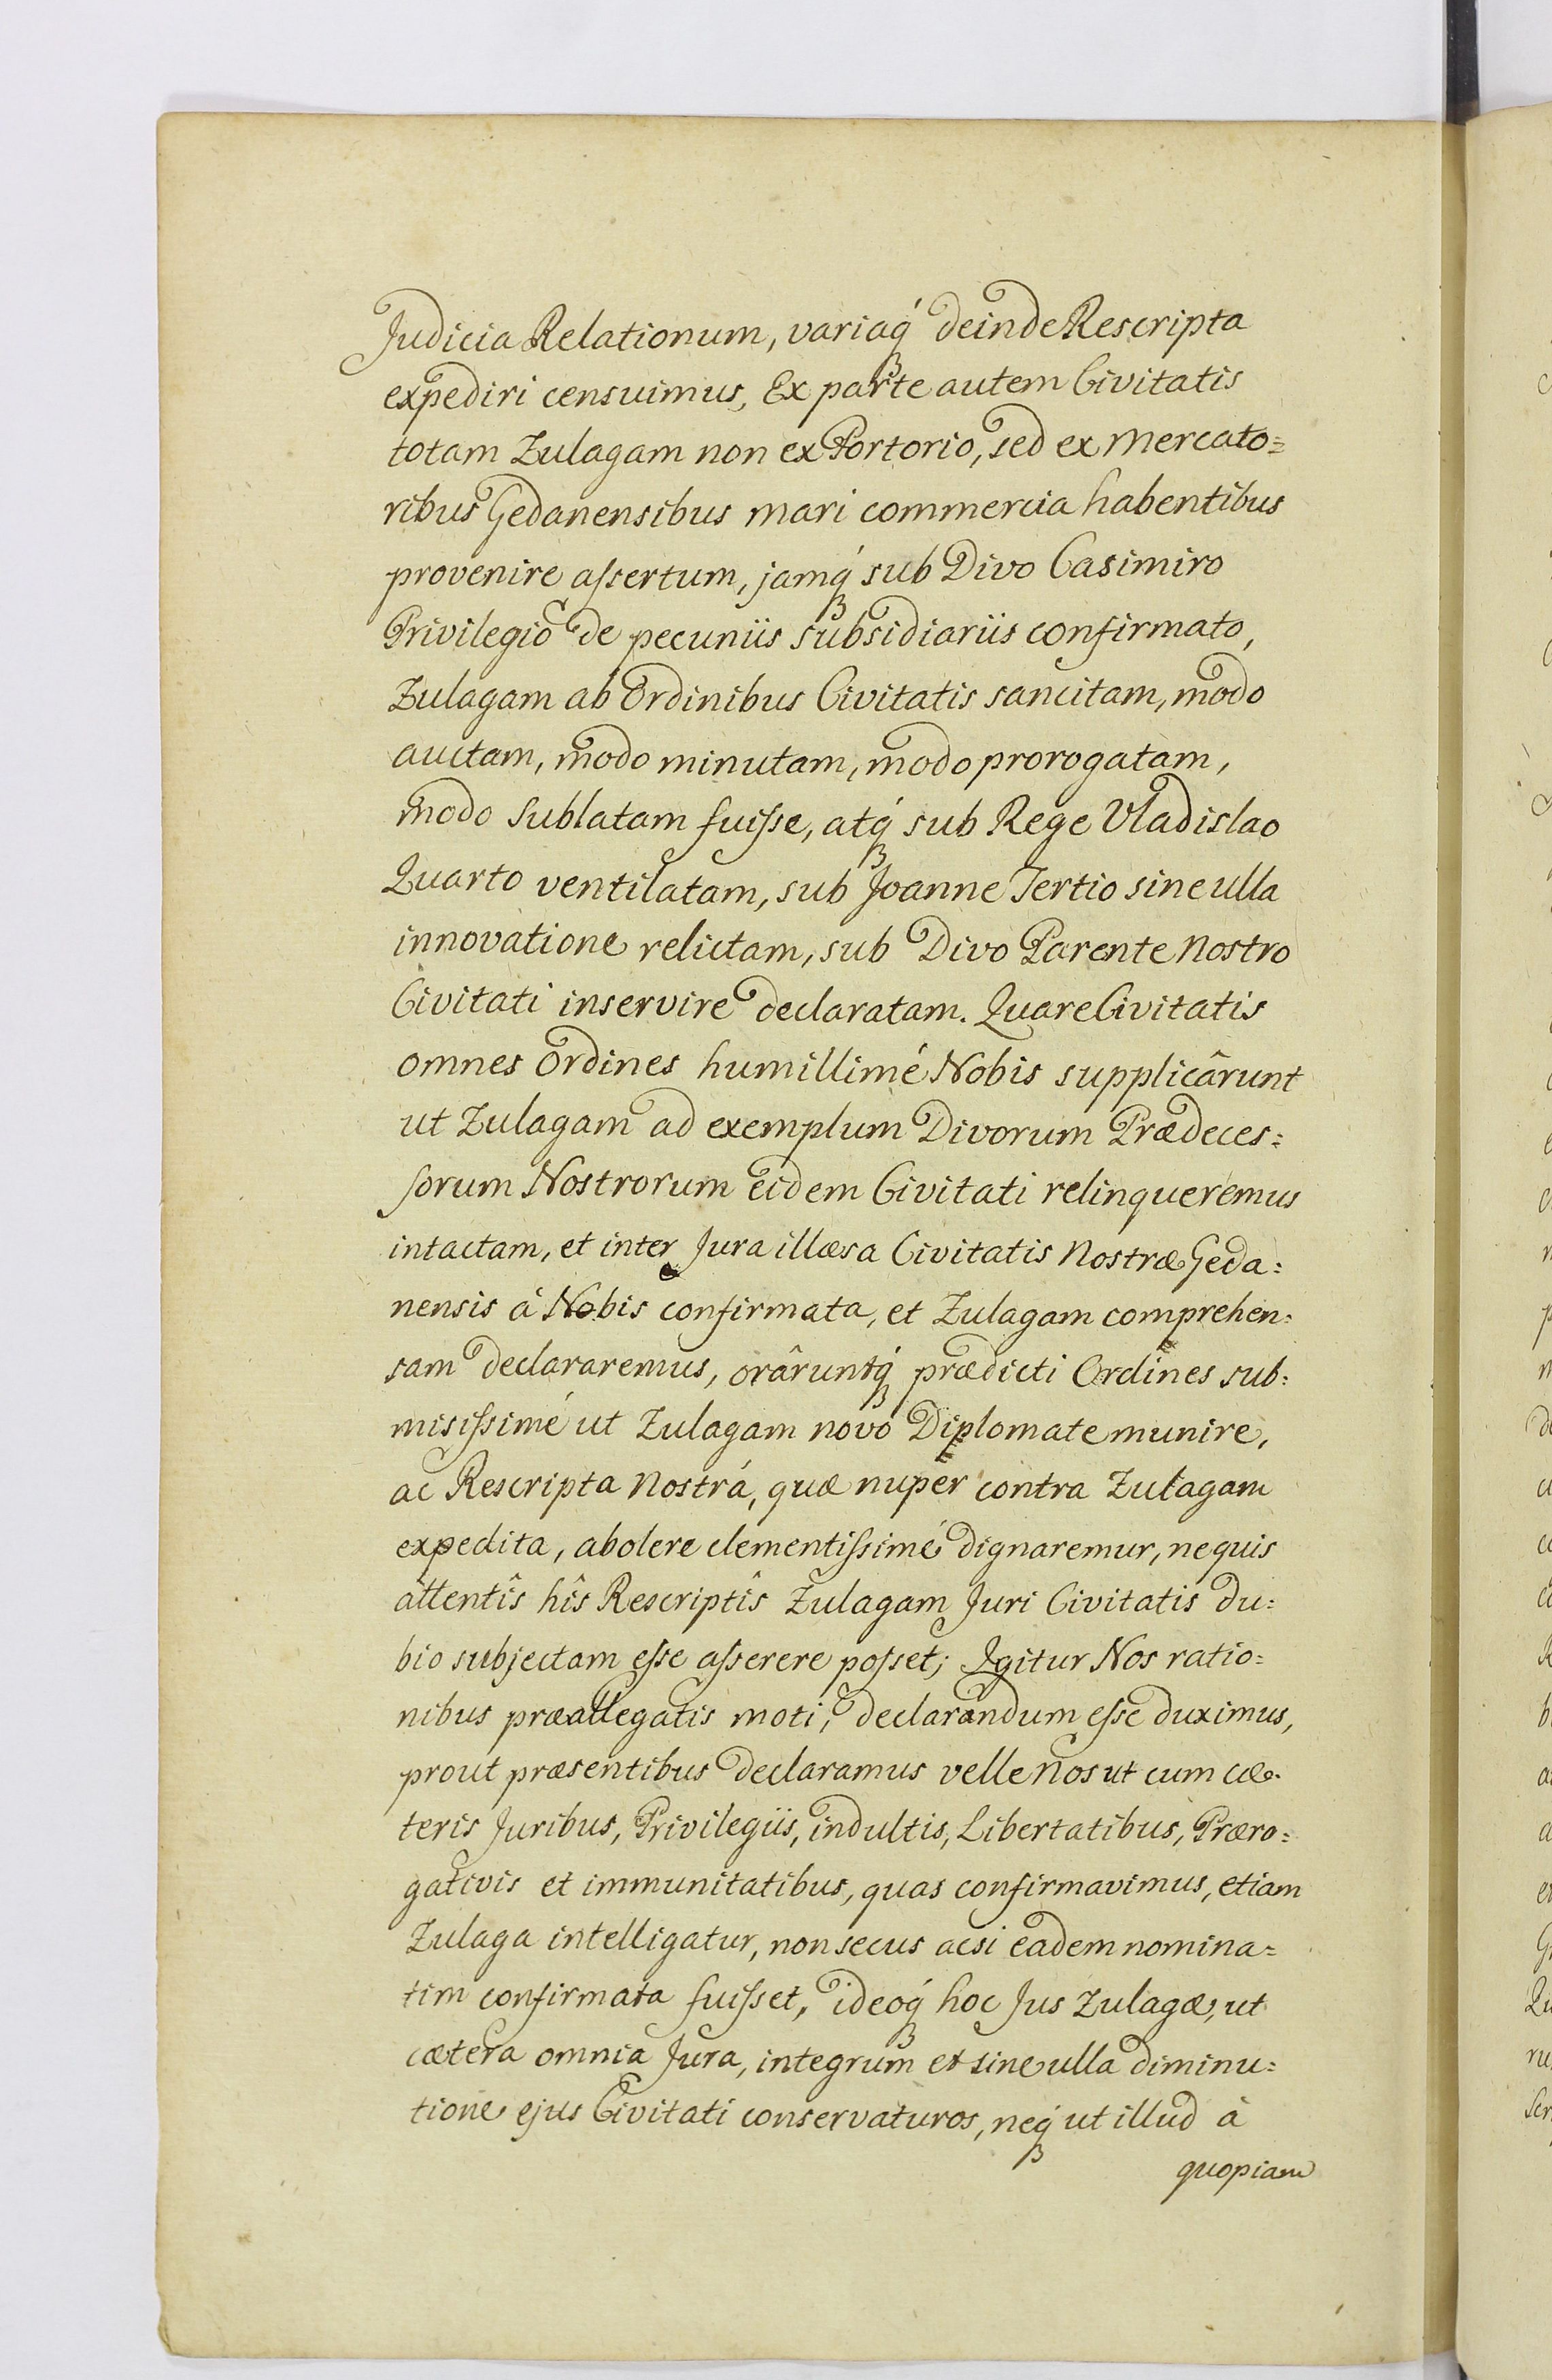 Judicia Relationum, variaq́ꝫ deinde Rescripta
expediri censuimus, Ex parte autem Civitatis
totam Zulagam non ex Portorio, sed ex Mercato=
ribus Gedanensibus mari commercia habentibus
provenire aſsertum, jamq́ꝫ sub Divo Casimiro
Privilegio de pecuniis subsidiariis confirmato,
Zulagam ab Ordinibus Civitatis sancitam, modo
auctam, modo minutam, modo prorogatam,
modo sublatam fuiſse, atq́ꝫ sub Rege Vladislao
Quarto ventilatam, sub Joanne Tertio sine ulla
innovatione relictam, sub Divo Parente Nostro
Civitati inservire declaratam. Quare Civitatis
omnes Ordines humillimé Nobis supplicârunt
ut Zulagam ad exemplum Divorum Prædeces=
sorum Nostrorum eidem Civitati relinqueremus
intactam, et inter Jura illæsa Civitatis Nostræ Geda=
nensis á Nobis confirmata, et Zulagam comprehen=
sam declararemus, orâruntq́ꝫ prædicti Ordines sub=
misiſsimé ut Zulagam novo Diplomate munire,
ac Rescripta Nostra, quæ nuper contra Zulagam
expedita, abolere clementiſsimé dignaremur, ne quis
attentîs hîs Rescriptîs Zulagam Juri Civitatis du=
bio subjectam eſse aſserere poſset; Igitur Nos ratio=
nibus præallegatis moti, declarandum eſse duximus,
prout præsentibus declaramus velle Nos ut cum cæ=
teris Juribus, Privilegiis, indultis, Libertatibus, Præro=
gativis et immunitatibus, quas confirmavimus, etiam
Zulaga intelligatur, non secus acsi eadem nomina=
tim confirmata fuiſset, ideoq́ꝫ hoc Jus Zulagæ, ut
cætera omnia Jura, integrum et sine ulla diminu=
tione ejus Civitati conservaturos, neq́ꝫ ut illud á
quopiam